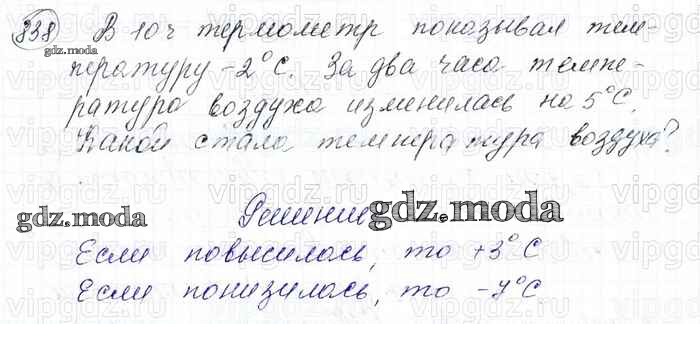 838) В 10 ч термометр показывал тем-
gdz.moda
пературу -2°С. За два часа темпе-
ратура воздуха изменилась на 5°С.
Какой стала температура воздуха?
gdz.moda
Решение
gdz.moda
Если повысилась, то +3°С
Если понизилась, то -7°С